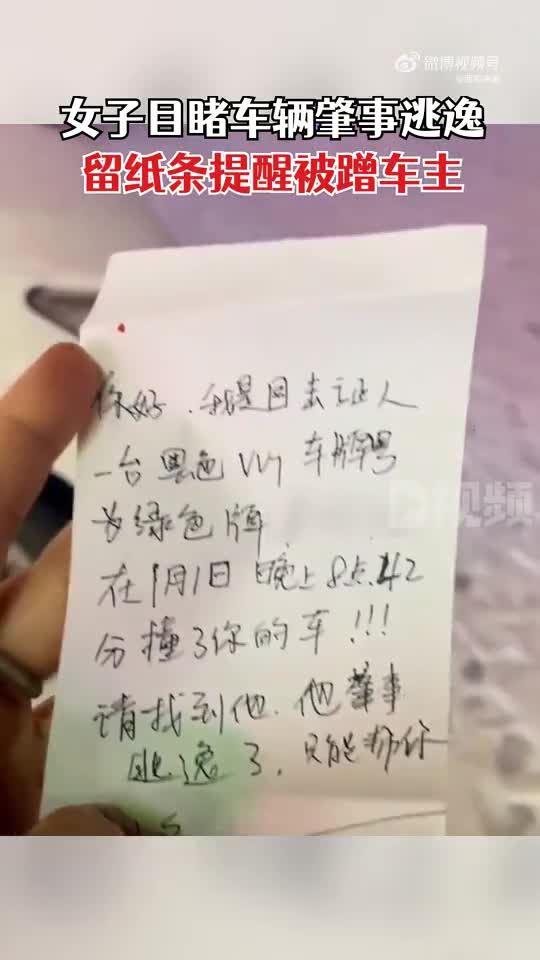 微博视频号
女子目睹车辆肇事逃逸
留纸条提醒被蹭车主
你好.我是目击证人
一台黑色VV7车牌号
为绿色牌
视频
在1月1日晚上8点42
分撞了你的车!!!
请找到他.他肇事
逃逸了.只能帮你